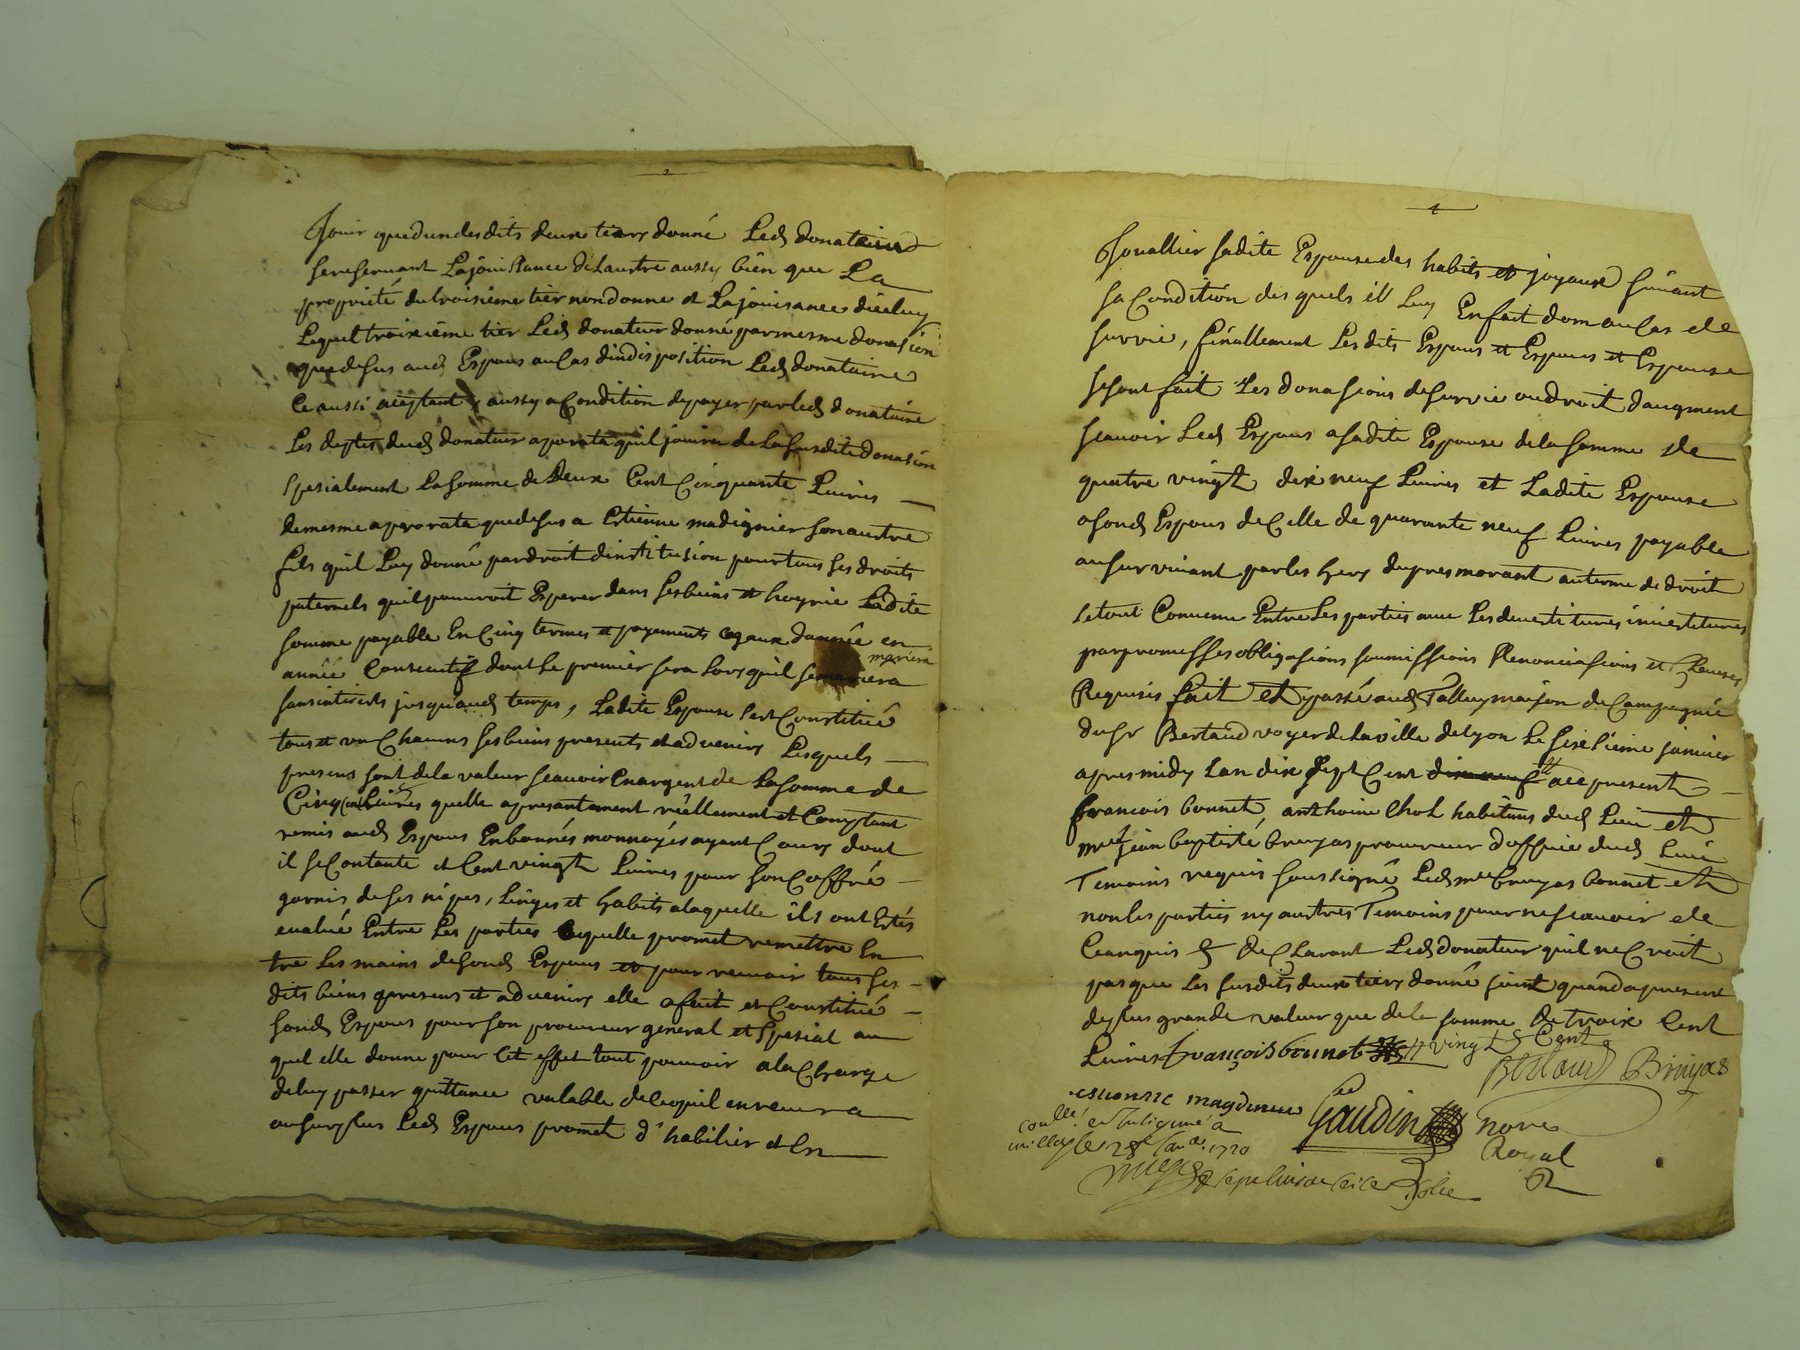 Jouir quedundesdits deux tiers donné Led donateur
sereservant Lajouissance de Lautre aussy bien que La
proprieté du troisieme tier nondonne et Lajouisance diceluy
Lequel troixiéme tier Led donateur donne parmesme donasion
quedesus aud Espoux aucas dindisposition Led donataire
ce aussi aceptant aussy acondition de payer par led donataire
Les deptes dud donateur aporata quil jouira de La susdite donasion
spesialement La somme de Deux Cent Cinquante Livres
demesme aprorata quedesus a Estienne madignier son autre
fils quil Luy donné pardroit dinstitusion pourtous ses droits
paternels quil pouvroit Esperer dans sesbiens et hoyrie Ladite
somme payable En Cinq termes et payements egaux dannée en
année Consecutif dont Le premier sera Lors quil semariera
sans interests jusquaud temps, Ladite Espouse sest Constitué
tous et un Chacuns ses biens presents et advenirs Lesquels
presens sont de la valeur scavoir En argent de La somme de
Cinq Livres quelle apresantement réellement et Comptant
remis aud Espoux En bonnes monnoyes ayant Cours dont
il se Contente et Cent vingt Livres pour son Coffré
garnis de ses nipes, Linges et habits alaquelle ils ont Estés
evalué Entre Les parties Laquelle promet remettre En
tre Les mains de sond Espoux et pour recevoir tous ses
dits biens presens et advenirs elle a fait et Constitué
sond Espoux pour son procureur general et spesial au
quel elle donne pour Cet effet tout pouvoir a la Charge
de luy passer quittance valable de Cequil en recevra
au surplus Led Espoux promet d'habilier et En
Jouallier sadite Espouse des habits et joyaux suivant
sa Condition des quels il Luy En fait dom au Cas de
survie, finallement Les dits Espoux et Espoux et Espouse
se sont fait Les donasions de survie ou droit daugment
scavoir Led Espoux a sadite Espouse de la somme de
quatre vingt dix neuf Livres et Ladite Espouse
a sond Espoux de Celle de quarante neuf Livres payable
au survivant par les hers du presmorant au terme de droit
Le tout Convenu Entre Les parties avec Les devestitures investitures
par promesses obligasions soumissions Renonciasions et Clauses
Requises fait et passé aud Talluy maison de Campagne
du sr Bertaud voyer de La ville de Lyon Le sixSieme janvier
apres midy Lan dix sept Cent vingt a ce present
francois bonnet, anthoine Chol habitans dud Lieu et
mre jean baptisté bruyas procureur d'office dud Lieu
Temoins requis soussigné Led mre bruyas bonnet et
non les parties ny autres Temoins pour ne scavoir de
Ce enquis & de Clarant Led donateur quil ne Croit
pas que Les susdits deux tiers donné soint quand a present
de plus grande valeur que de la somme de troix Cent
Livres françois bonnet vingt & Cent
Bruyas
Gaudin nore
Royal
le 28 1720